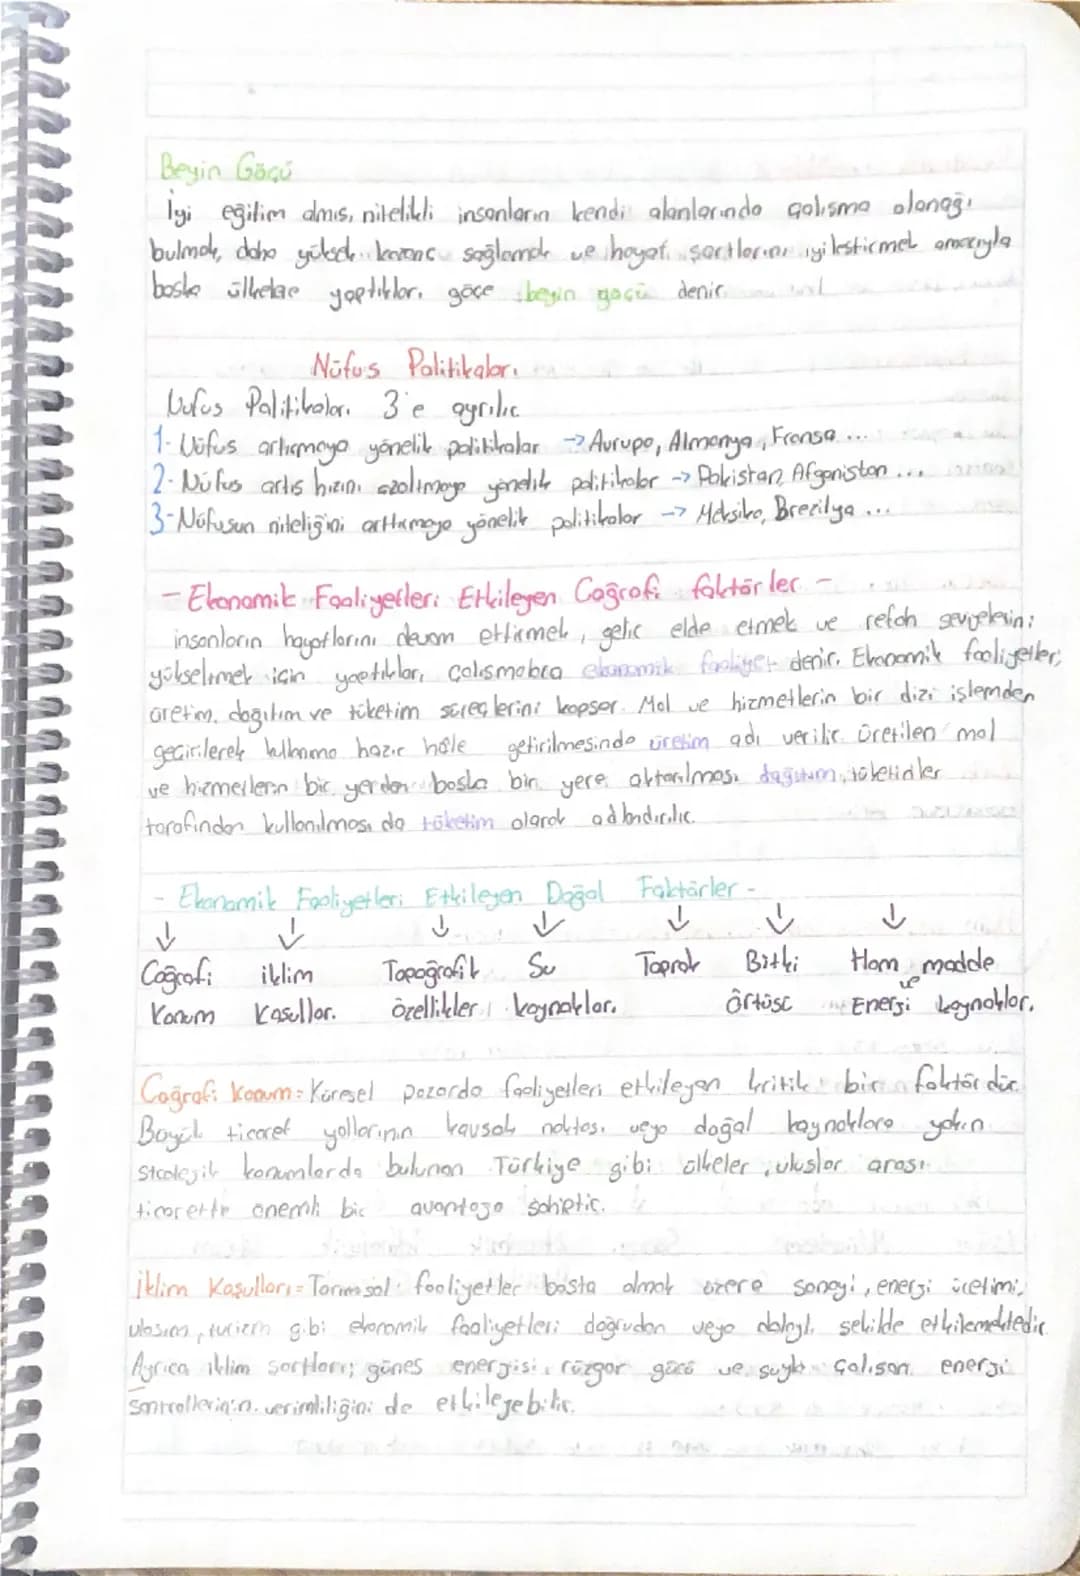 Beyin Göçü
İyi eğitim almış, nitelikli insanların kendi alanlarında çalışma olanağı
bulmak, daha yüksek kazanc sağlamak ve hayat şartlarını iyileştirmek amacıyla
başka ülkelere yaptıkları göçe beyin göçü denir.
Nüfus Politikaları
Nüfus Politikaları 3'e ayrılır
1- Nüfus artırmaya yönelik politikalar → Avrupa, Almanya, Fransa ...
2- Nüfus artış hızını azaltmaya yönelik politikalar → Pakistan, Afganistan ...
3- Nüfusun niteliğini arttırmaya yönelik politikalar → Meksika, Brezilya ...
- Ekonomik Faaliyetleri Etkileyen Coğrafi faktörler -
insanların hayatlarını devam ettirmek, gelir elde etmek ve refah seviyelerini
yükseltmek için yaptıkları çalışmalara ekonomik faaliyet denir. Ekonomik faaliyetler;
üretim, dağıtım ve tüketim süreçlerini kapsar. Mal ve hizmetlerin bir dizi işlemden
geçirilerek kullanıma hazır hâle getirilmesinde üretim adı verilir. Üretilen mal
ve hizmetlerin bir yerden başka bir yere aktarılması dağıtım, tüketiciler
tarafından kullanılması da tüketim olarak adlandırılır.
- Ekonomik Faaliyetleri Etkileyen Doğal Faktörler -
↓ ↓ ↓ ↓ ↓ ↓ ↓
Coğrafi iklim Topoğrafik Su Toprak Bitki Ham madde
ve
Konum Koşulları özellikleri kaynakları Örtüsü Enerji kaynakları
Coğrafi Konum = Küresel pazarda faaliyetleri etkileyen kritik bir faktördür.
Büyük ticaret yollarının kavşak noktası veya doğal kaynaklara yakın
stratejik konumlarda bulunan Türkiye gibi ülkeler, uluslar arası
ticarette önemli bir avantaja sahiptir.
İklim Koşulları = Tarımsal faaliyetler başta olmak üzere sanayi, enerji üretimi,
ulaşım, turizm gibi ekonomik faaliyetleri doğrudan veya dolaylı şekilde etkilemektedir.
Ayrıca iklim şartları; güneş enerjisi, rüzgar gücü ve suyla çalışan enerji
santrallerinin verimliliğini de etkileyebilir.